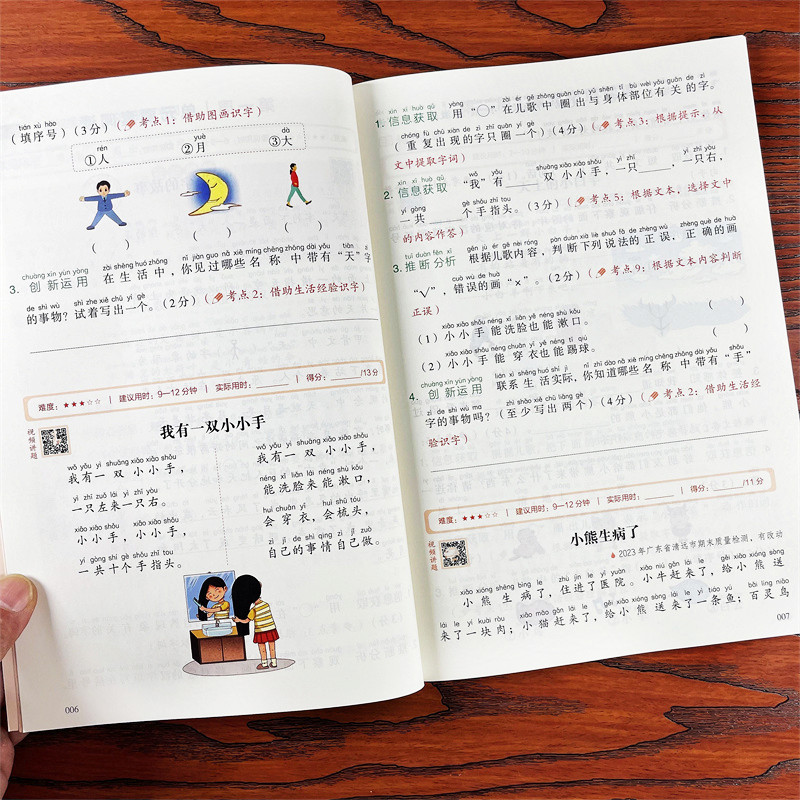 tián xù hào
（填序号）（3分）（考点1：借助图画识字）
rén yuè dà
①人 ②月 ③大
（ ） （ ） （ ）
chuàng xīn yùn yòng zài shēng huó zhōng nǐ jiàn guo nǎ xiē míng chēng zhōng dài yǒu tiān zì
3. 创新运用 在生活中，你见过哪些名称中带有“天”字
de shì wù shì zhe xiě chū yí gè
的事物？试着写出一个。（2分）（考点2：借助生活经验识字）
难度：★★★☆☆ | 建议用时：9—12分钟 | 实际用时：______ | 得分：______/13分
视频讲题
我有一双小小手
wǒ yǒu yì shuāng xiǎo xiǎo shǒu
我有一双小小手，
yì zhī zuǒ lái yì zhī yòu
一只左来一只右。
xiǎo xiǎo shǒu xiǎo xiǎo shǒu
小小手，小小手，
yí gòng shí gè shǒu zhǐ tou
一共十个手指头。
wǒ yǒu yì shuāng xiǎo xiǎo shǒu
我有一双小小手，
néng xǐ liǎn lái néng shù kǒu
能洗脸来能漱口，
huì chuān yī huì shū tóu
会穿衣，会梳头，
zì jǐ de shì qing zì jǐ zuò
自己的事情自己做。
006
xìn xī huò qǔ yòng zài ér gē zhōng quān chū yǔ shēn tǐ bù wèi yǒu guān de zì
1. 信息获取 用“○”在儿歌中圈出与身体部位有关的字。
chóng fù chū xiàn de zì zhǐ quān yí gè
（重复出现的字只圈一个）（4分）（考点3：根据提示，从
文中提取字词）
xìn xī huò qǔ wǒ yǒu shuāng xiǎo xiǎo shǒu yì zhī yì zhī
2. 信息获取 “我”有______双小小手，一只______一只右，
yí gòng gè shǒu zhǐ tou
一共______个手指头。（3分）（考点5：根据文本，选择文中
的内容作答）
tuī duàn fēn xī gēn jù ér gē nèi róng pàn duàn xià liè shuō fǎ de zhèng wù zhèng què de huà
3. 推断分析 根据儿歌内容，判断下列说法的正误，正确的画
cuò wù de huà
“√”，错误的画“×”。（2分）（考点9：根据文本内容判断
正误）
xiǎo xiǎo shǒu néng xǐ liǎn yě néng shù kǒu
（1）小小手能洗脸也能漱口。 （ ）
xiǎo xiǎo shǒu néng chuān yī yě néng tī qiú
（2）小小手能穿衣也能踢球。 （ ）
chuàng xīn yùn yòng lián xì shēng huó shí jì nǐ zhī dào nǎ xiē míng chēng zhōng dài yǒu shǒu
4. 创新运用 联系生活实际，你知道哪些名称中带有“手”
zì de shì wù ma zhì shǎo xiě chū liǎng gè
字的事物吗？（至少写出两个）（4分）（考点2：借助生活经
验识字）
难度：★★★☆☆ | 建议用时：9—12分钟 | 实际用时：______ | 得分：______/11分
视频讲题
小熊生病了
2023年广东省清远市期末质量检测，有改动
xiǎo xióng shēng bìng le zhù jìn le yī yuàn xiǎo niú gǎn lái le gěi xiǎo xióng sòng
小熊生病了，住进了医院。小牛赶来了，给小熊送
lái le yí kuài ròu xiǎo māo gǎn lái le gěi xiǎo xióng sòng lái le yì tiáo yú bǎi líng niǎo
来了一块肉；小猫赶来了，给小熊送来了一条鱼；百灵鸟
007